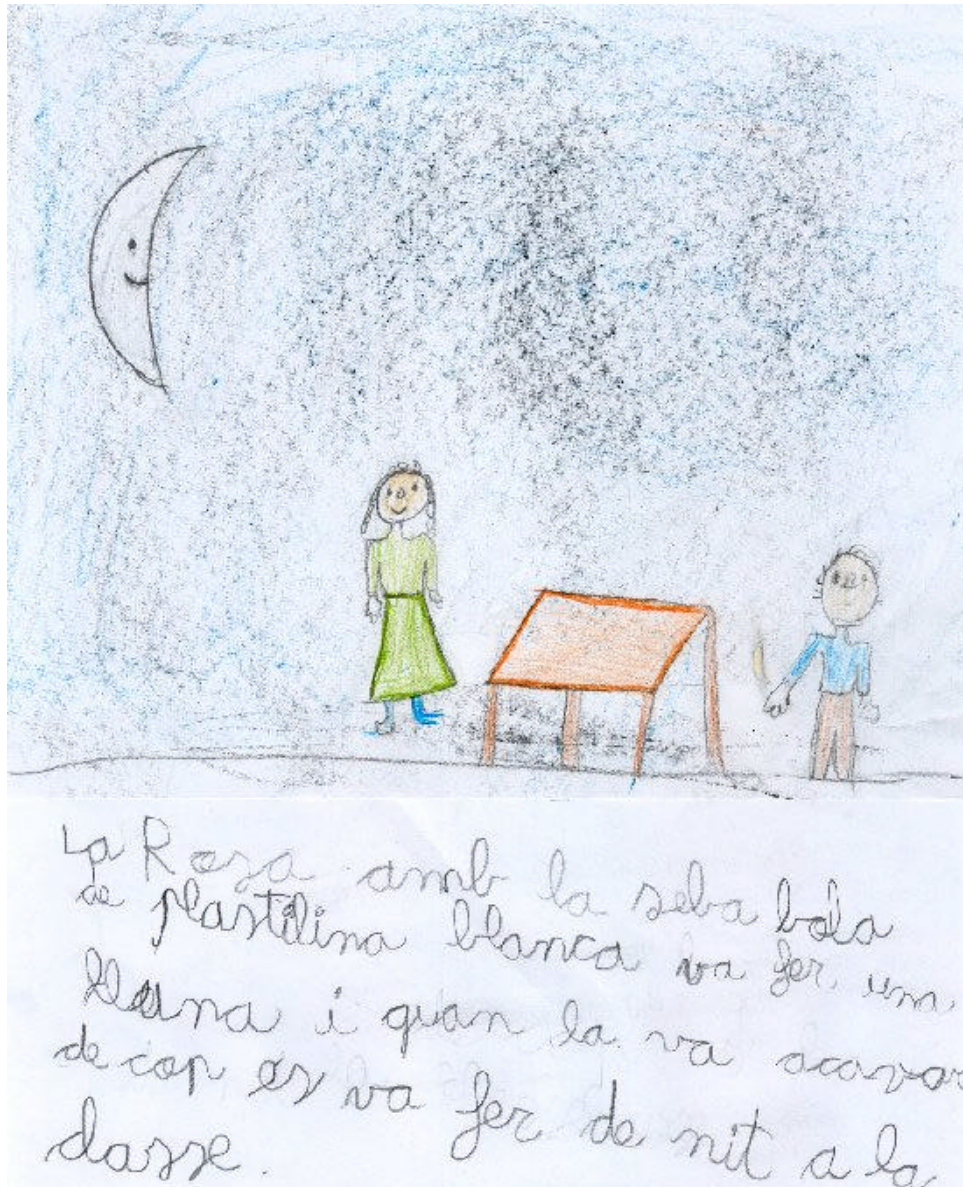 La Rosa amb la seba bola
de plastilina blanca va fer una
lluna i quan la va acavar
de cop es va fer de nit a la
classe.